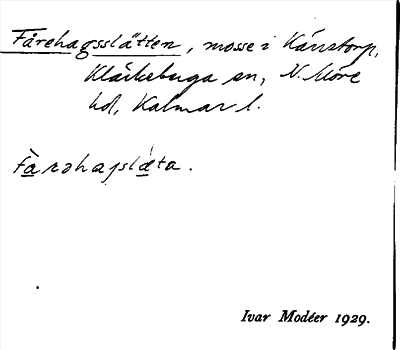 Fårehagsslätten, mosse i Kärrstorp,
Kläckeberga sn, N. Möre
hd, Kalmar l.
fàrəhagslæ̀ta.
Ivar Modéer 1929.